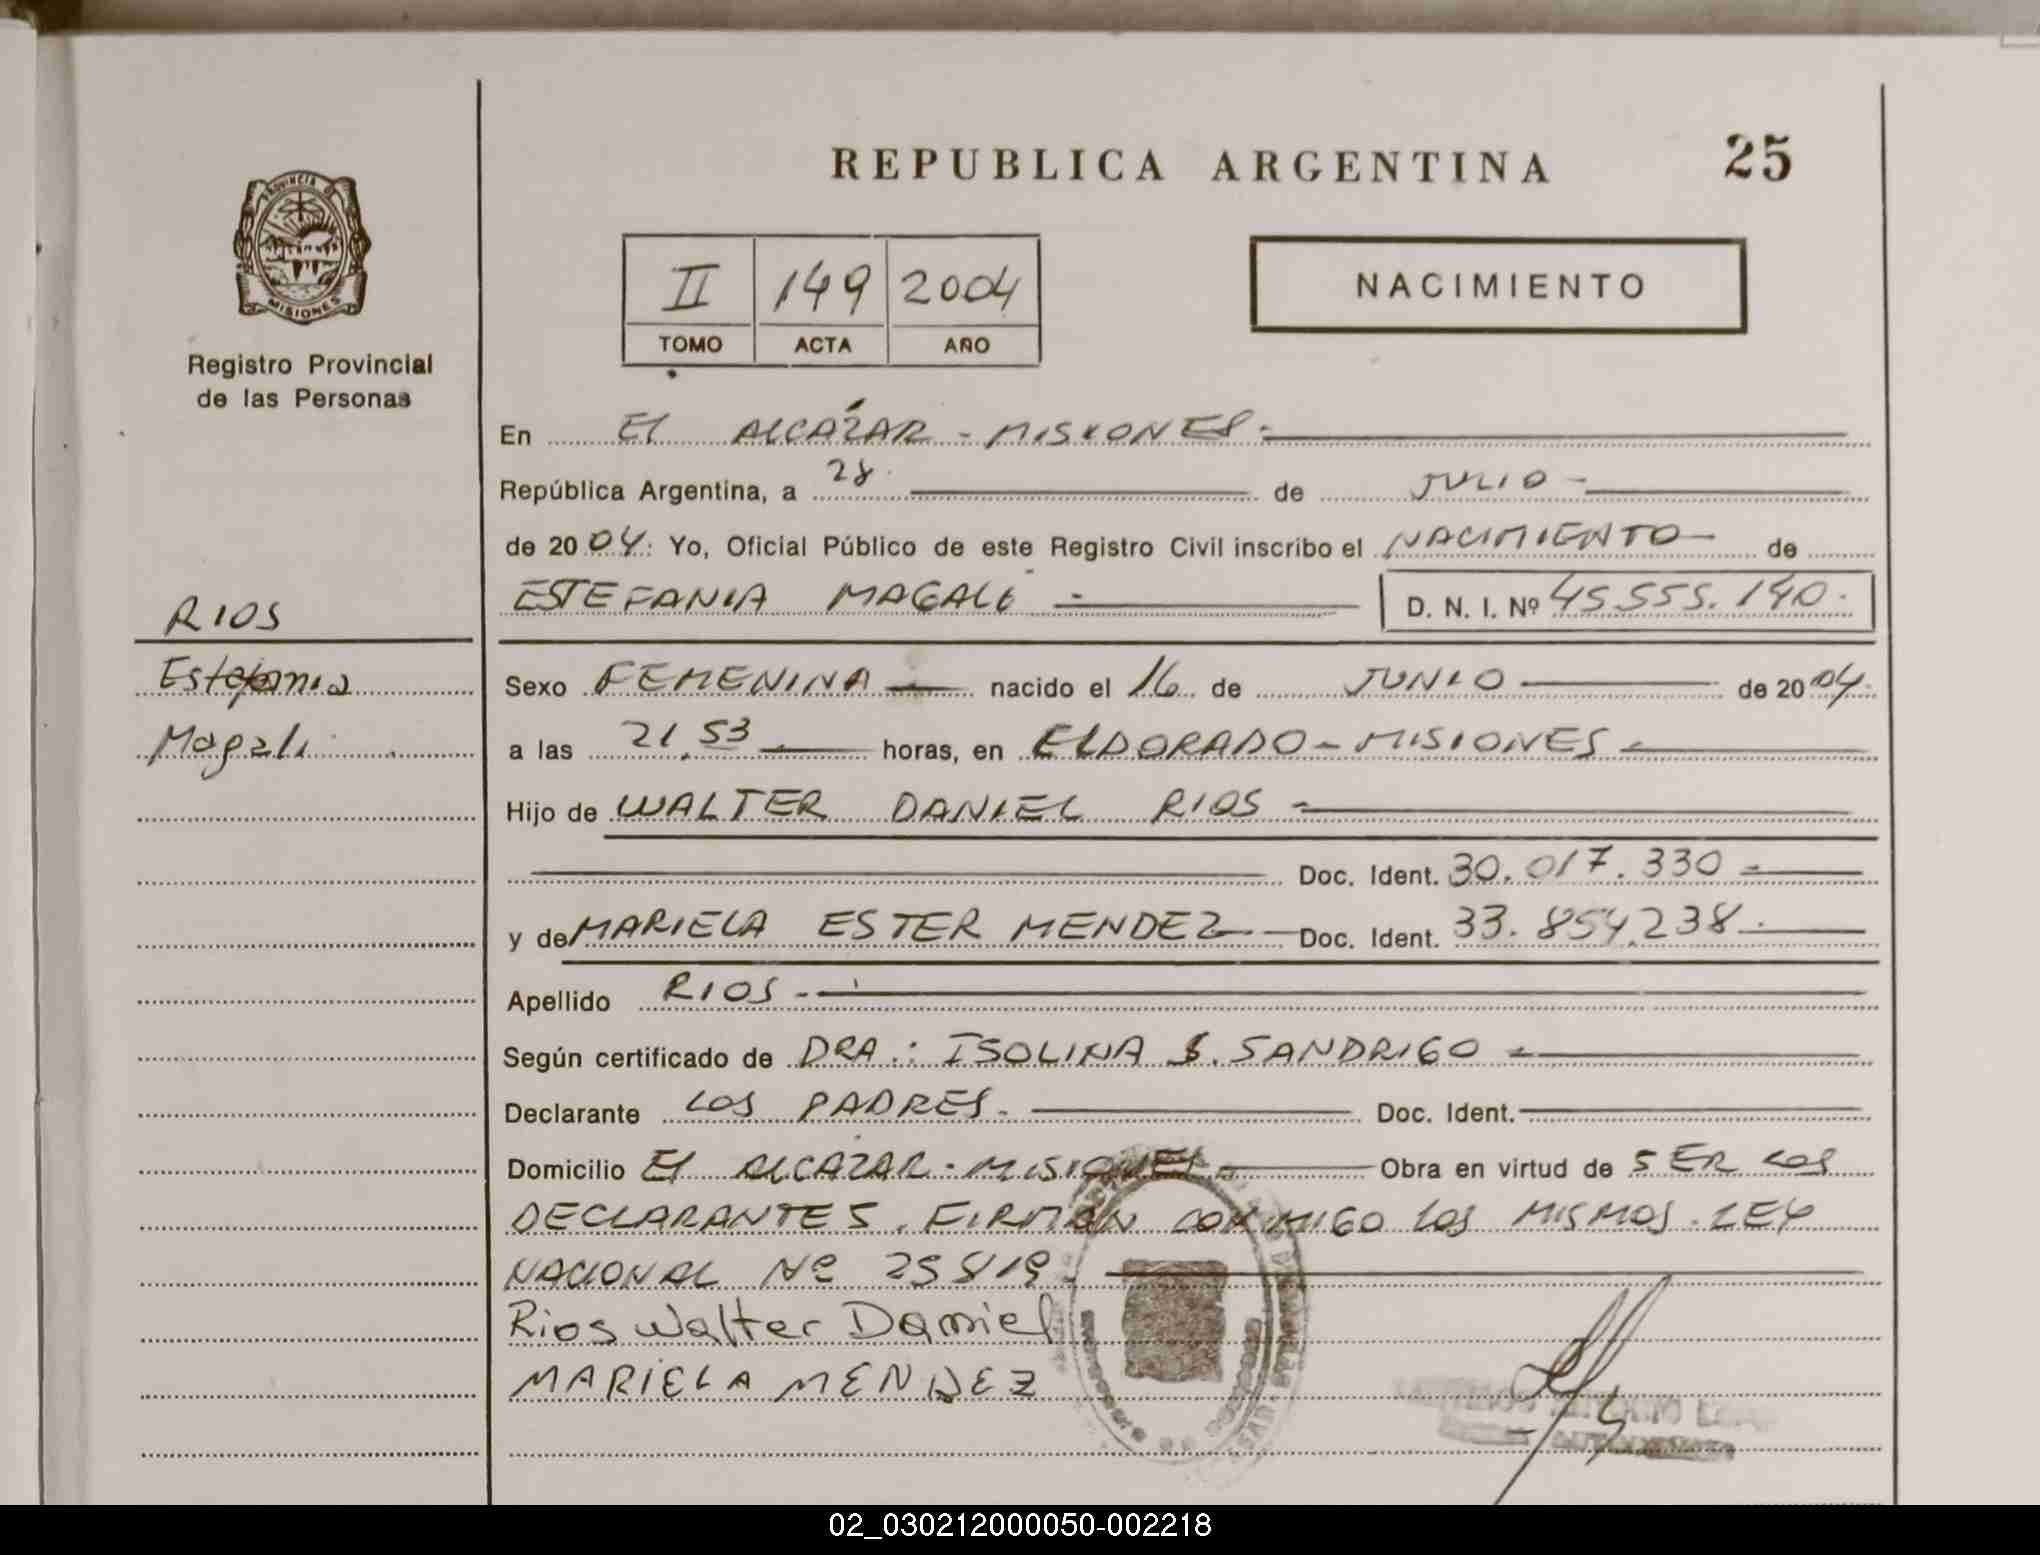 REPUBLICA ARGENTINA
25
PROVINCIA D
MISIONES
Registro Provincial
de las Personas
II 149 2004
TOMO ACTA AÑO
NACIMIENTO
En El ALCAZAR - MISIONES.-
República Argentina, a 28 de JULIO -
de 2004: Yo, Oficial Público de este Registro Civil inscribo el NACIMIENTO - de
ESTEFANIA MAGALI - D. N. I. Nº 45.555.140.-
RIOS
Estefania
Magali
Sexo FEMENINA - nacido el 16 de JUNIO - de 2004.
a las 21,53 - horas, en ELDORADO - MISIONES -
Hijo de WALTER DANIEL RIOS -
Doc. Ident. 30.017.330 -
y de MARIELA ESTER MENDEZ - Doc. Ident. 33.854.238 -
Apellido RIOS -
Según certificado de DRA.: ISOLINA S. SANDRIGO -
Declarante LOS PADRES. - Doc. Ident.
Domicilio El ALCAZAR - MISIONES - Obra en virtud de SER LOS
DECLARANTES. FIRMAN CONMIGO LOS MISMOS. LEY
NACIONAL Nº 25819.
Rios Walter Daniel
MARIELA MENDEZ
02_030212000050-002218